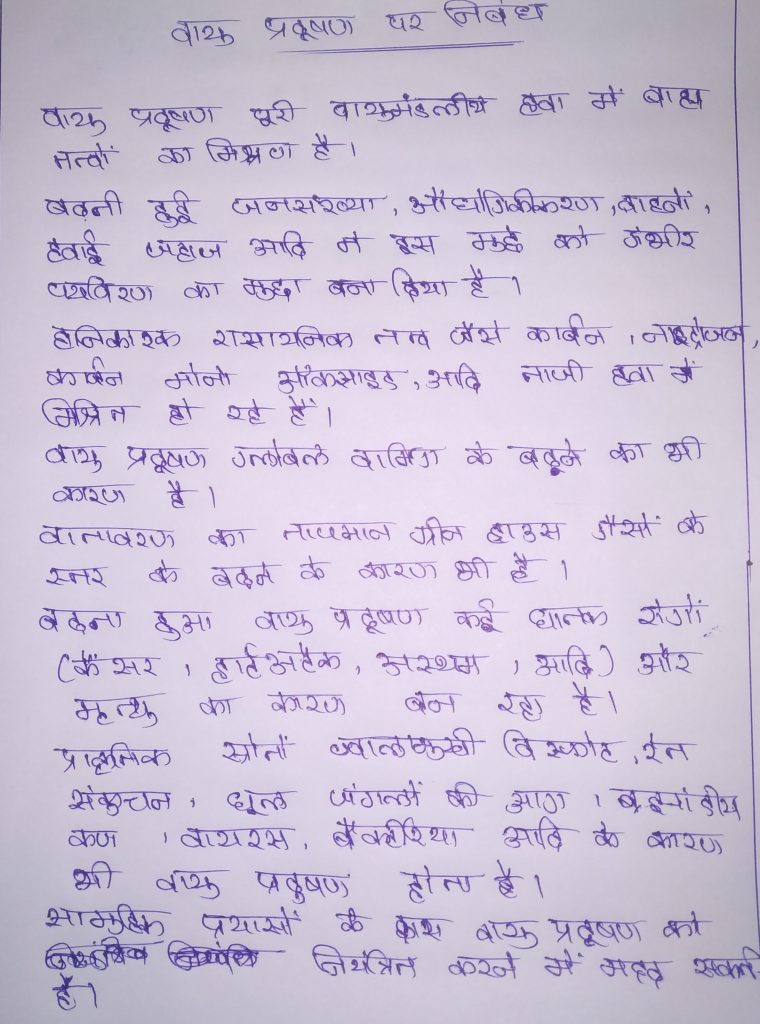 वायु प्रदूषण पर निबंध
वायु प्रदूषण पूरी वायुमंडलीय हवा में बाह्य
तत्वों का मिश्रण है।
बढती हुई जनसंख्या, औद्योगिकीकरण, वाहनों,
हवाई जहाज आदि ने इस मुद्दे को गंभीर
पर्यावरण का मुद्दा बना दिया है।
हानिकारक रासायनिक तत्व जैसे कार्बन, नाइट्रोजन,
कार्बन मोनो ऑक्साइड, आदि ताजी हवा में
मिश्रित हो रहे हैं।
वायु प्रदूषण ग्लोबल वार्मिंग के बढ़ने का भी
कारण है।
वातावरण का तापमान ग्रीन हाउस गैसों के
स्तर के बढ़ने के कारण भी है।
बढ़ता हुआ वायु प्रदूषण कई घातक रोगों
(कैंसर, हार्टअटैक, अस्थम, आदि) और
मृत्यु का कारण बन रहा है।
प्राकृतिक स्रोतों ज्वालामुखी विस्फोट, रेत
संकुचन, धूल जंगलों की आग, ब्रह्मांडीय
कण, वायरस, बैक्टीरिया आदि के कारण
भी वायु प्रदुषण होता है।
सामुहिक प्रयासों के वायु प्रदूषण को
नियंत्रित करने में मदद सकते
है।